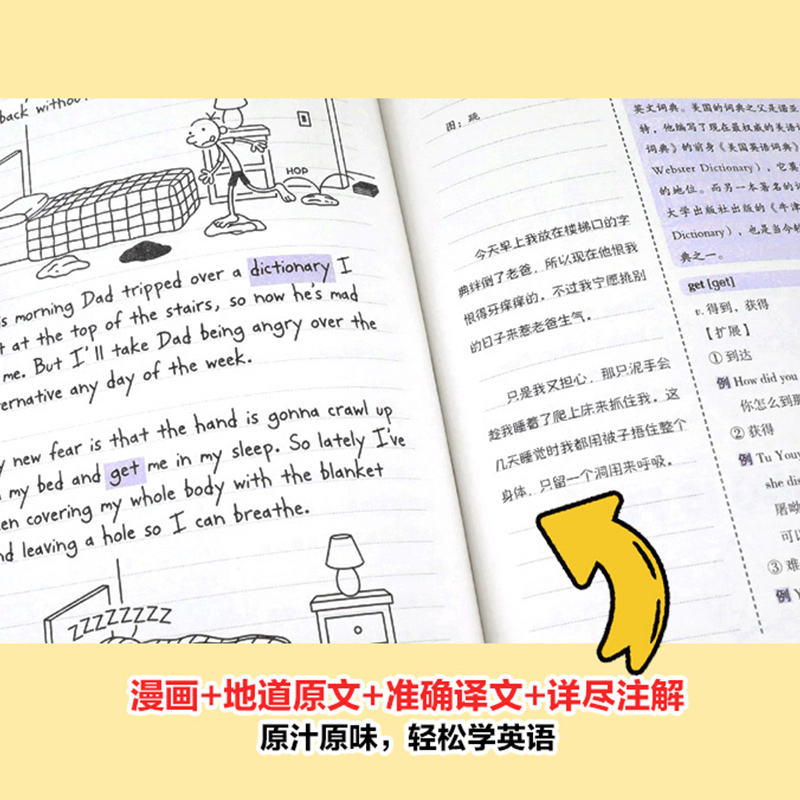 back
HOP
morning Dad tripped over a dictionary I
at the top of the stairs, so now he's mad
me. But I'll take Dad being angry over the
any day of the week.
new fear is that the hand is gonna crawl up
my bed and get me in my sleep. So lately I've
covering my whole body with the blanket
leaving a hole so I can breathe.
ZZZZZZZZ
图：跳
今天早上我放在楼梯口的字
典绊倒了老爸，所以现在他恨我
恨得牙痒痒的。不过我宁愿挑别
的日子来惹老爸生气。
只是我又担心，那只泥手会
趁我睡着了爬上床来抓住我。这
几天睡觉时我都用被子捂住整个
身体，只留一个洞用来呼吸。
英文词典。美国的词典之父是诺亚
特，他编写了现在最权威的美语
词典》的前身《美国英语词典》
Webster Dictionary），它
的地位。而另一本著名的
大学出版社出版的《牛津
Dictionary），也是当今
典之一。
get [get]
v. 得到，获得
【扩展】
① 到达
例 How did you
你怎么到
② 获得
例 Tu
she
屠呦
可以
③ 难
例
漫画+地道原文+准确译文+详尽注解
原汁原味，轻松学英语